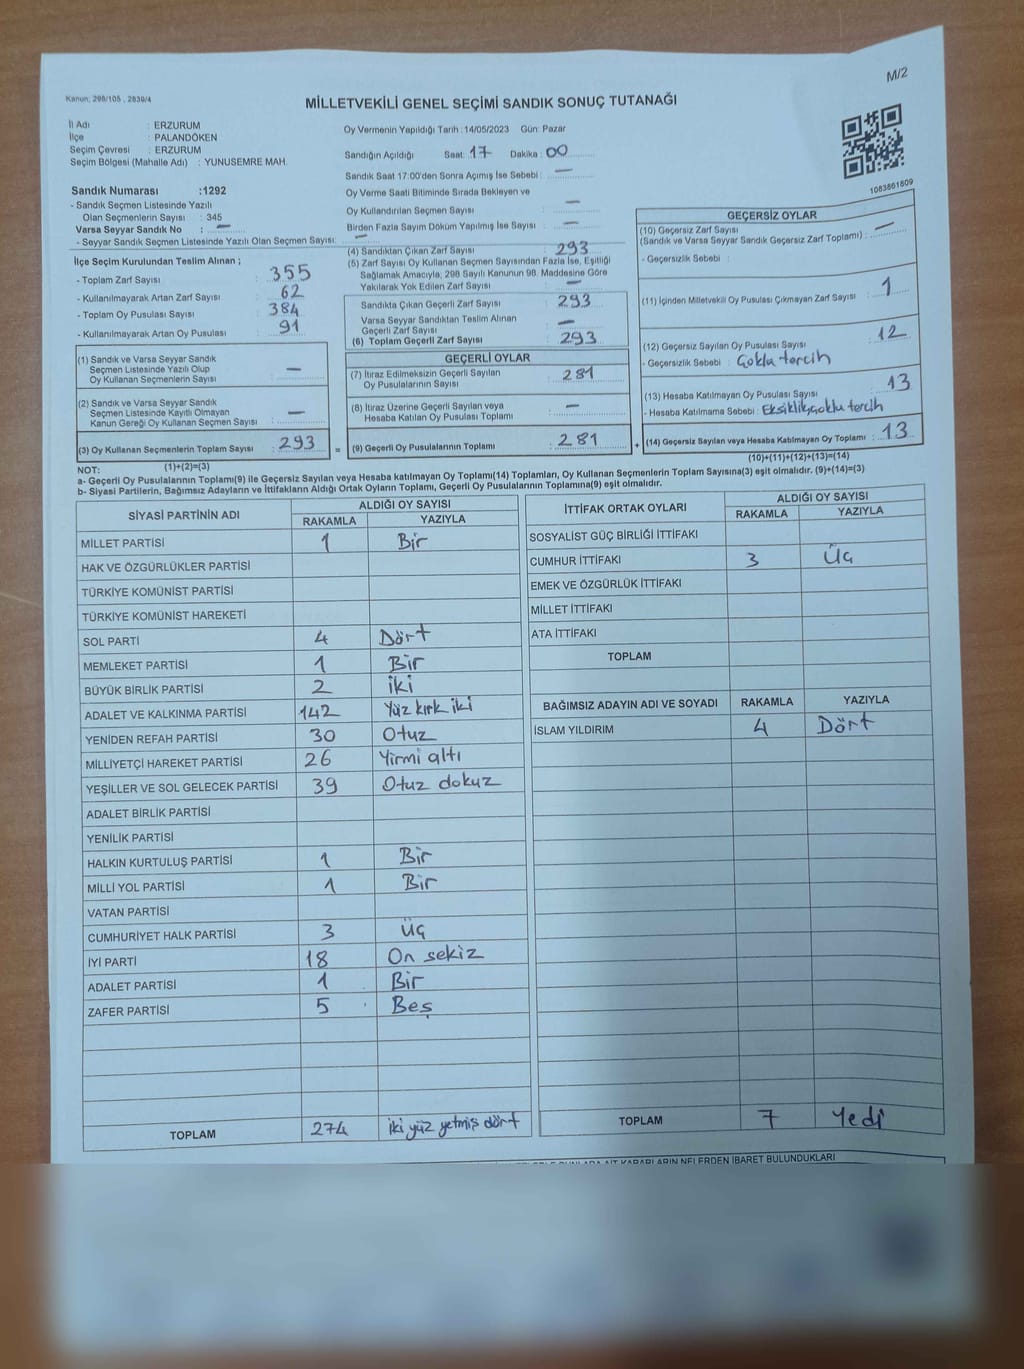 M/2
Kanun: 298/105 , 2839/4
MİLLETVEKİLİ GENEL SEÇİMİ SANDIK SONUÇ TUTANAĞI
İl Adı : ERZURUM
İlçe : PALANDÖKEN
Seçim Çevresi : ERZURUM
Seçim Bölgesi (Mahalle Adı) : YUNUSEMRE MAH.
Sandık Numarası :1292
- Sandık Seçmen Listesinde Yazılı
Olan Seçmenlerin Sayısı : 345
Varsa Seyyar Sandık No : —
- Seyyar Sandık Seçmen Listesinde Yazılı Olan Seçmen Sayısı: —
Oy Vermenin Yapıldığı Tarih :14/05/2023 Gün: Pazar
Sandığın Açıldığı Saat: 17 Dakika : 00
Sandık Saat 17:00'den Sonra Açımış İse Sebebi : —
Oy Verme Saati Bitiminde Sırada Bekleyen ve
Oy Kullandırılan Seçmen Sayısı : —
Birden Fazla Sayım Döküm Yapılmış İse Sayısı : —
1083861809
İlçe Seçim Kurulundan Teslim Alınan ;
- Toplam Zarf Sayısı : 355
- Kullanılmayarak Artan Zarf Sayısı : 62
- Toplam Oy Pusulası Sayısı : 384
- Kullanılmayarak Artan Oy Pusulası : 91
(1) Sandık ve Varsa Seyyar Sandık
Seçmen Listesinde Yazılı Olup
Oy Kullanan Seçmenlerin Sayısı : —
(2) Sandık ve Varsa Seyyar Sandık
Seçmen Listesinde Kayıtlı Olmayan
Kanun Gereği Oy Kullanan Seçmen Sayısı : —
(3) Oy Kullanan Seçmenlerin Toplam Sayısı : 293
(4) Sandıktan Çıkan Zarf Sayısı : 293
(5) Zarf Sayısı Oy Kullanan Seçmen Sayısından Fazla İse, Eşitliği
Sağlamak Amacıyla, 298 Sayılı Kanunun 98. Maddesine Göre
Yakılarak Yok Edilen Zarf Sayısı : —
Sandıkta Çıkan Geçerli Zarf Sayısı : 293
Varsa Seyyar Sandıktan Teslim Alınan
Geçerli Zarf Sayısı : —
(6) Toplam Geçerli Zarf Sayısı : 293
GEÇERLİ OYLAR
(7) İtiraz Edilmeksizin Geçerli Sayılan
Oy Pusulalarının Sayısı : 281
(8) İtiraz Üzerine Geçerli Sayılan veya
Hesaba Katılan Oy Pusulaları Toplamı : —
= (9) Geçerli Oy Pusulalarının Toplamı : 281
GEÇERSİZ OYLAR
(10) Geçersiz Zarf Sayısı
(Sandık ve Varsa Seyyar Sandık Geçersiz Zarf Toplamı) : —
- Geçersizlik Sebebi :
(11) İçinden Milletvekili Oy Pusulası Çıkmayan Zarf Sayısı : 1
(12) Geçersiz Sayılan Oy Pusulası Sayısı : 12
- Geçersizlik Sebebi : Çoklu tercih
(13) Hesaba Katılmayan Oy Pusulası Sayısı : 13
- Hesaba Katılmama Sebebi : Eksiklik,çoklu tercih
+ (14) Geçersiz Sayılan veya Hesaba Katılmayan Oy Toplamı : 13
NOT: (1)+(2)=(3)
(10)+(11)+(12)+(13)=(14)
a- Geçerli Oy Pusulalarının Toplamı(9) ile Geçersiz Sayılan veya Hesaba katılmayan Oy Toplamı(14) Toplamları, Oy Kullanan Seçmenlerin Toplam Sayısına(3) eşit olmalıdır. (9)+(14)=(3)
b- Siyasi Partilerin, Bağımsız Adayların ve İttifakların Aldığı Ortak Oyların Toplamı, Geçerli Oy Pusulalarının Toplamına(9) eşit olmalıdır.
SİYASİ PARTİNİN ADI ALDIĞI OY SAYISI
RAKAMLA YAZIYLA
MİLLET PARTİSİ 1 Bir
HAK VE ÖZGÜRLÜKLER PARTİSİ
TÜRKİYE KOMÜNİST PARTİSİ
TÜRKİYE KOMÜNİST HAREKETİ
SOL PARTİ 4 Dört
MEMLEKET PARTİSİ 1 Bir
BÜYÜK BİRLİK PARTİSİ 2 iki
ADALET VE KALKINMA PARTİSİ 142 Yüz kırk iki
YENİDEN REFAH PARTİSİ 30 Otuz
MİLLİYETÇİ HAREKET PARTİSİ 26 Yirmi altı
YEŞİLLER VE SOL GELECEK PARTİSİ 39 Otuz dokuz
ADALET BİRLİK PARTİSİ
YENİLİK PARTİSİ
HALKIN KURTULUŞ PARTİSİ 1 Bir
MİLLİ YOL PARTİSİ 1 Bir
VATAN PARTİSİ
CUMHURİYET HALK PARTİSİ 3 Üç
İYİ PARTİ 18 On sekiz
ADALET PARTİSİ 1 Bir
ZAFER PARTİSİ 5 Beş
TOPLAM 274 iki yüz yetmiş dört
İTTİFAK ORTAK OYLARI ALDIĞI OY SAYISI
RAKAMLA YAZIYLA
SOSYALİST GÜÇ BİRLİĞİ İTTİFAKI
CUMHUR İTTİFAKI 3 Üç
EMEK VE ÖZGÜRLÜK İTTİFAKI
MİLLET İTTİFAKI
ATA İTTİFAKI
TOPLAM
BAĞIMSIZ ADAYIN ADI VE SOYADI RAKAMLA YAZIYLA
İSLAM YILDIRIM 4 Dört
TOPLAM 7 Yedi
AİT KARARLARIN NELERDEN İBARET BULUNDUKLARI